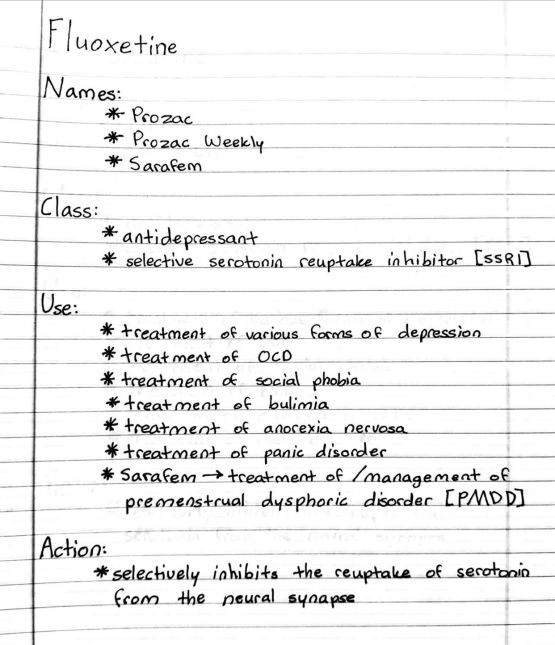 Fluoxetine
Names:
* Prozac
* Prozac Weekly
* Sarafem
Class:
* antidepressant
* selective serotonin reuptake inhibitor [SSRI]
Use:
* treatment of various forms of depression
* treatment of OCD
* treatment of social phobia
* treatment of bulimia
* treatment of anorexia nervosa
* treatment of panic disorder
* Sarafem → treatment of /management of
premenstrual dysphoric disorder [PMDD]
Action:
* selectively inhibits the reuptake of serotonin
from the neural synapse